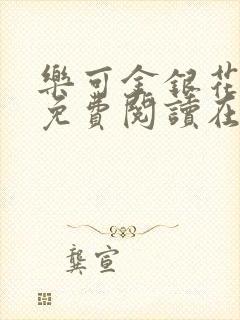 樂可金銀花
免費閱讀在
龔宣